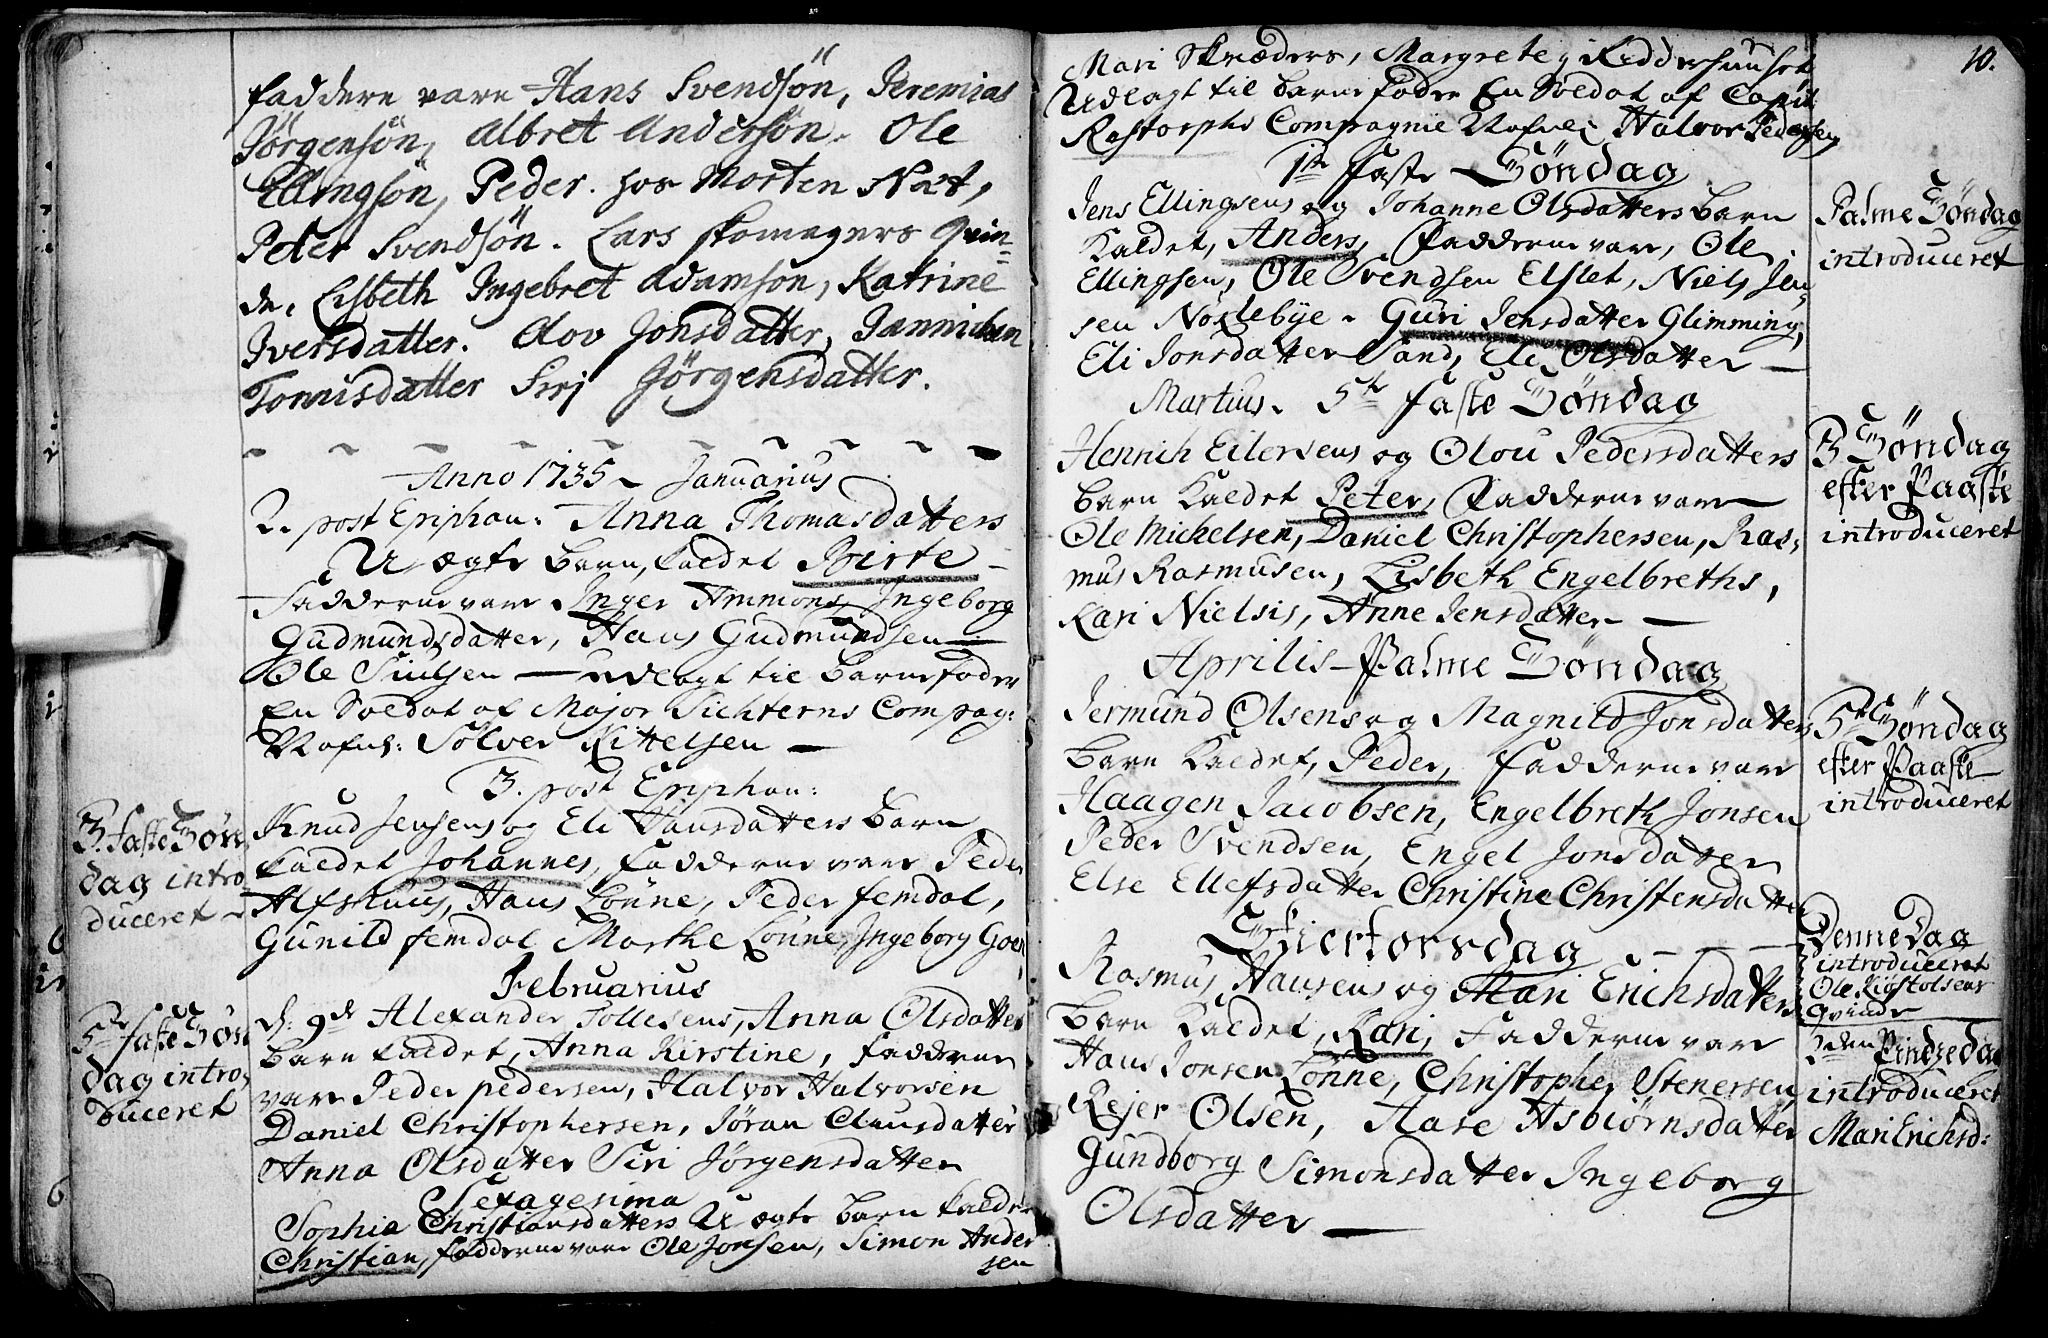 faddere vare Hans Svendsön, Jeremias
Jörgensön, Albret Andersön. Ole
Ellingsön, Peder. hos Morten Næt,
Peter Svendsön. Lars skomagers Qvin=
de. Lisbeth Ingebret Adamsön, Katrine
Iversdatter. Alov Jonsdatter, Jannichen
Tonnisdatter Sirj Jörgensdatter.
Anno 1735 Januarius
2. post Epiphan: Anna Thomasdatters
U ægte barn, kaldet Birte
Fadderne vare Inger Ammons, Ingeborg
Gudmundsdatter, Hans Gudmundsen
Ole Siulsen — udlagt til barnefader
En Soldat af Major Sichterns Compag:
Nafnl: Sölver Kittelsen —
3. post Epiphan:
3. Faste Sön
dag intro
duceret
Knud Jensens og Eli Hansdatters barn
kaldet Johannes, Fadderne vare Peder
Alfshuus, Hans Lönne, Peder femdal,
Gunild femdal Marthe Lönne, Ingeborg
Februarius
5te Faste Sön
dag intro,
duceret
d: 9de Alexander Tollesens, Anna Olsdatters
barn kaldet, Anna Kirstine, Fadderne
vare Peder pedersen, Halvor Halvorsen
Daniel Christophersen, Jöran Clausdatter
Anna Olsdatter Siri Jörgensdatter
Sexagesima
Sophia Christiansdatters U ægte barn kaldet
Christian, fadderne vare Ole Jonsen, Simon Ander
sen
10.
Mari Skræders, Margrete i Ridderhuuset
Udlagt til barnefader En Soldat af Capit:
Rastorphs Compagnie Nafnl: Halvor Pedersen
1te Faste Söndag
Jens Ellingsens og Johanne Olsdatters barn
Kaldet, Anders, Fadderne vare, Ole
Ellingsen, Ole Svendsen Elslet, Niels Jen,
sen Noslebÿe. Guri Jensdatter Glimming,
Eli Jonsdatter Sand, Eli Olsdatter —
Palme Söndag
introduceret
Martius. 5te Faste Söndag
Henrich Eilersens og Olou Pedersdatters
barn Kaldet Peter, Fadderne vare
Ole Mickelsen, Daniel Christophersen, Ras,
mus Rasmusen, Lisbeth Engelbreths,
Kari Nielsis, Anne Jensdatter —
3 Söndag
efter Paaske
introduceret
Aprilis — Palme Söndag
Jermund Olsens og Magnild Jonsdatters
barn Kaldet, Peder, Fadderne vare
Haagen Jacobsen, Engelbreth Jonsen
Peder Svendsen, Engel Jonsdatter
Else Ellefsdatter Christine Christensdatter
5te Söndag
efter Paaske
introduceret
Skiertorsdag
Rasmus Hansens og Mari Erichsdatters
barn Kaldet, Kari, Fadderne vare
Hans Jonsen Lönne, Christopher Stenersen
Rejer Olsen, Aase Asbiörnsdatter
Gundborg Simonsdatter Ingeborg
Olsdatter —
Denne Dag
introduceret
Ole
Qvinde
2den Pindsedag
introduceret
Mari Erichsd: